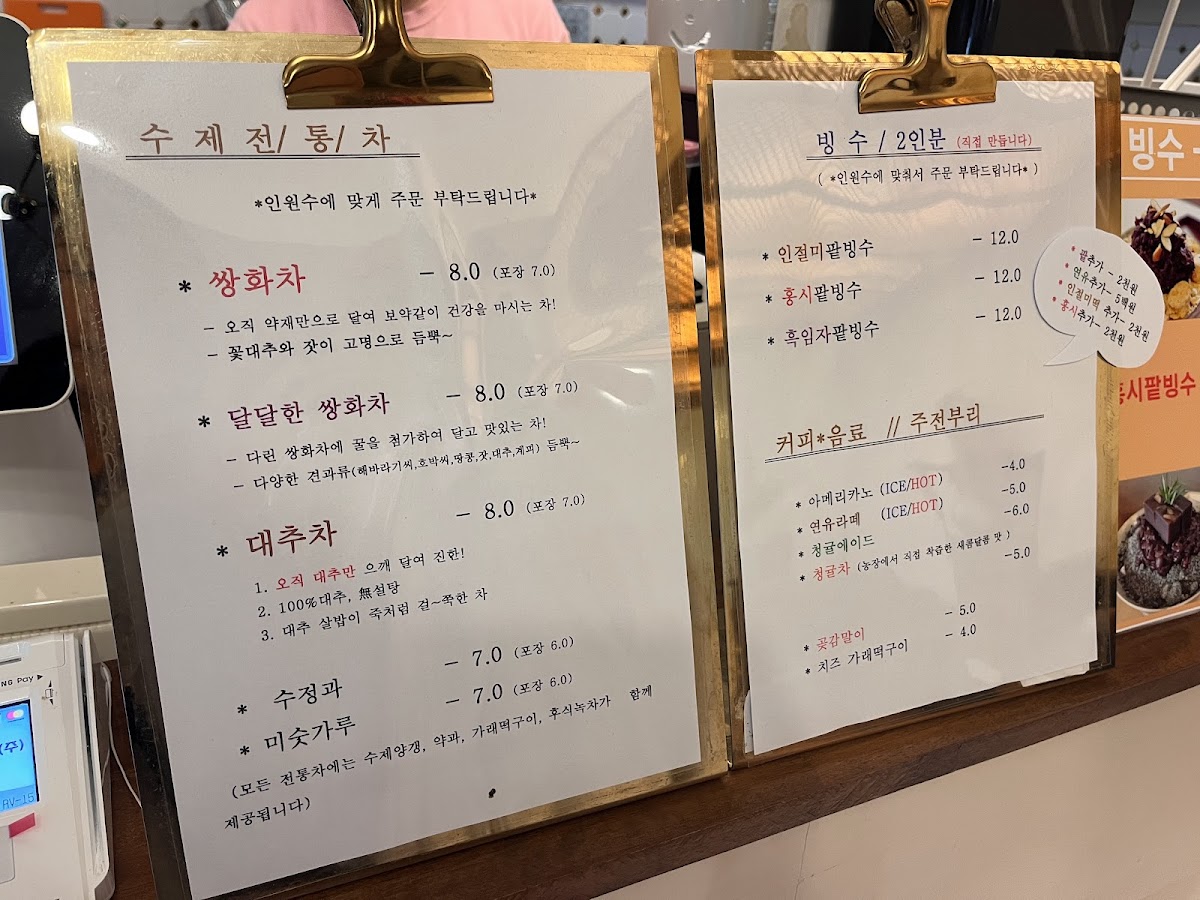 수 제 전/ 통/ 차
*인원수에 맞게 주문 부탁드립니다*
* 쌍화차 - 8.0 (포장 7.0)
- 오직 약재만으로 달여 보약같이 건강을 마시는 차!
- 꽃대추와 잣이 고명으로 듬뿍~
* 달달한 쌍화차 - 8.0 (포장 7.0)
- 다린 쌍화차에 꿀을 첨가하여 달고 맛있는 차!
- 다양한 견과류(해바라기씨,호박씨,땅콩,잣,대추,계피) 듬뿍~
* 대추차 - 8.0 (포장 7.0)
1. 오직 대추만 으깨 달여 진한!
2. 100%대추, 無설탕
3. 대추 살밥이 죽처럼 걸~쭉한 차
* 수정과 - 7.0 (포장 6.0)
* 미숫가루 - 7.0 (포장 6.0)
(모든 전통차에는 수제양갱, 약과, 가래떡구이, 후식녹차가 함께
제공됩니다)
빙 수 / 2인분 (직접 만듭니다)
( *인원수에 맞춰서 주문 부탁드립니다* )
* 인절미팥빙수 - 12.0
* 홍시팥빙수 - 12.0
* 흑임자팥빙수 - 12.0
* 팥추가 - 2천원
* 연유추가- 5백원
* 인절미떡 추가- 2천원
* 홍시추가- 2천원
커피*음료 // 주전부리
* 아메리카노 (ICE/HOT) -4.0
* 연유라떼 (ICE/HOT) -5.0
* 청귤에이드 -6.0
* 청귤차 (농장에서 직접 착즙한 새콤달콤 맛) -5.0
* 곶감말이 - 5.0
* 치즈 가래떡구이 - 4.0
빙수 -
홍시팥빙수
NG Pay
(주)
RV-15